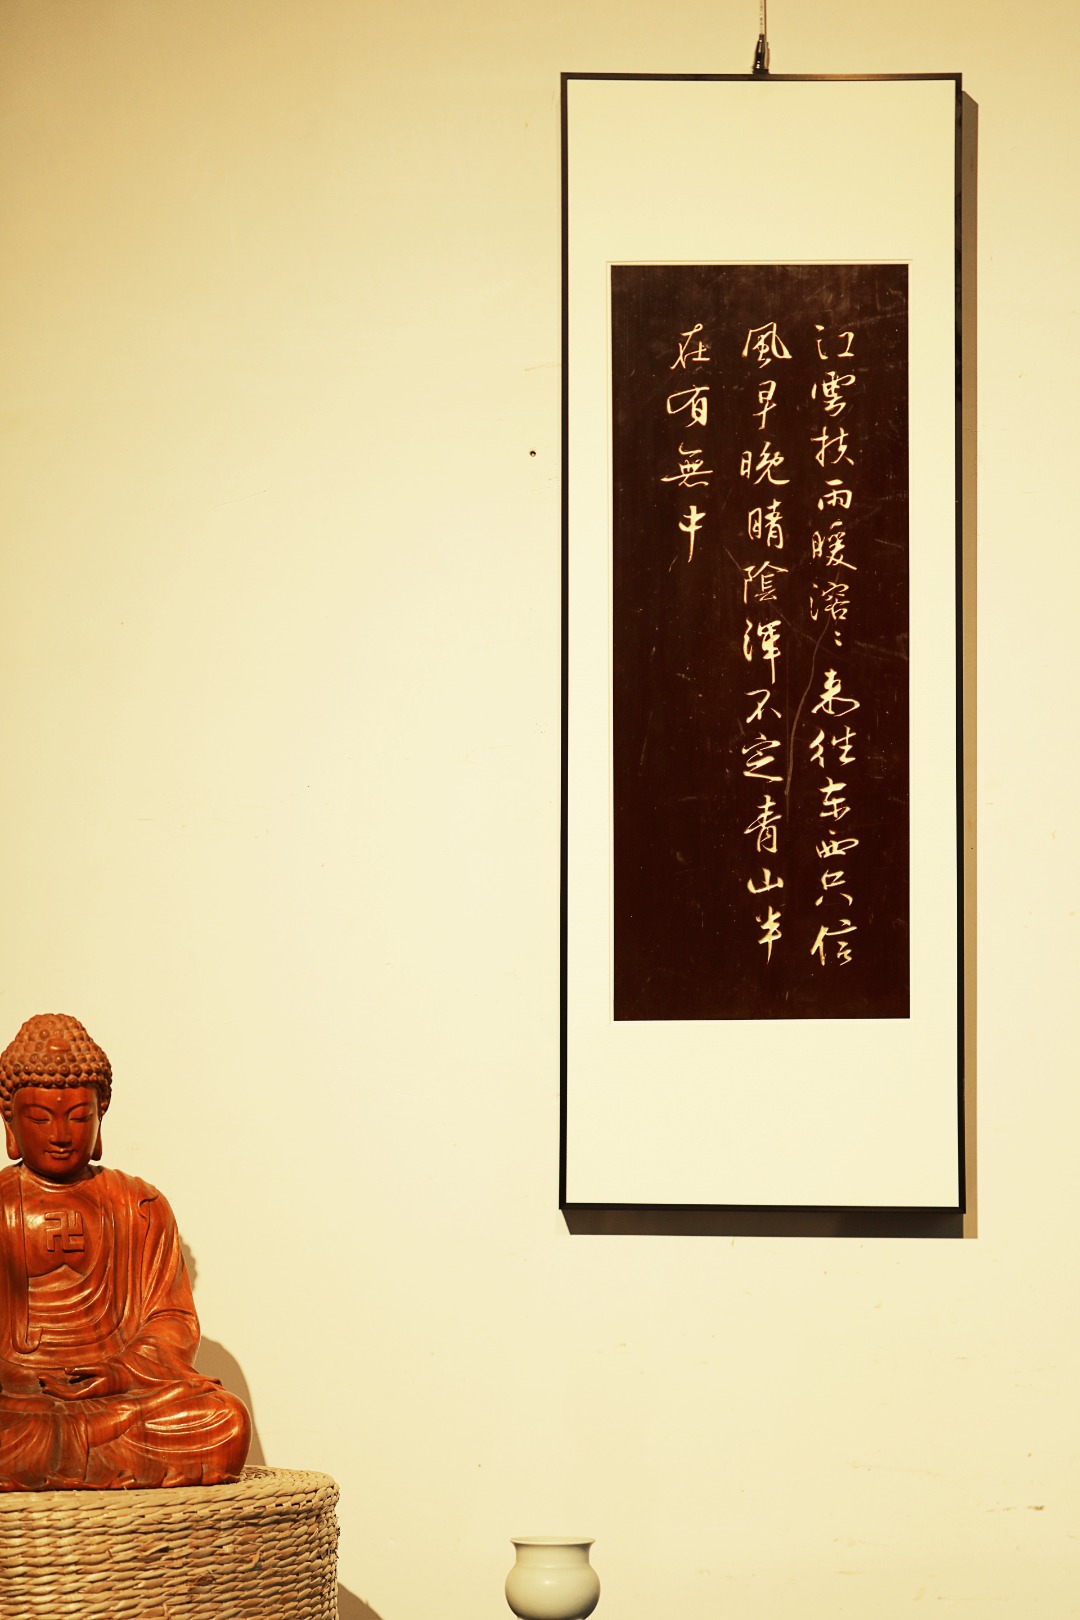 江雲扶雨暖溶〻来往东西只信
風早晚晴陰渾不定青山半
在有無中
卍